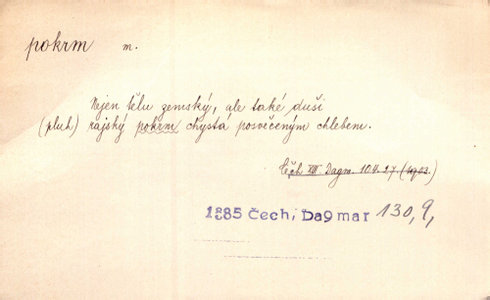 pokrm m.
Nejen tělu zemský, ale také duši
(pluh) rajský pokrm chystá posvěceným chlebem.
Čch XIII Dagm. 10.4. 27 (1903.)
1885 Čech, Dagmar 130, 9,